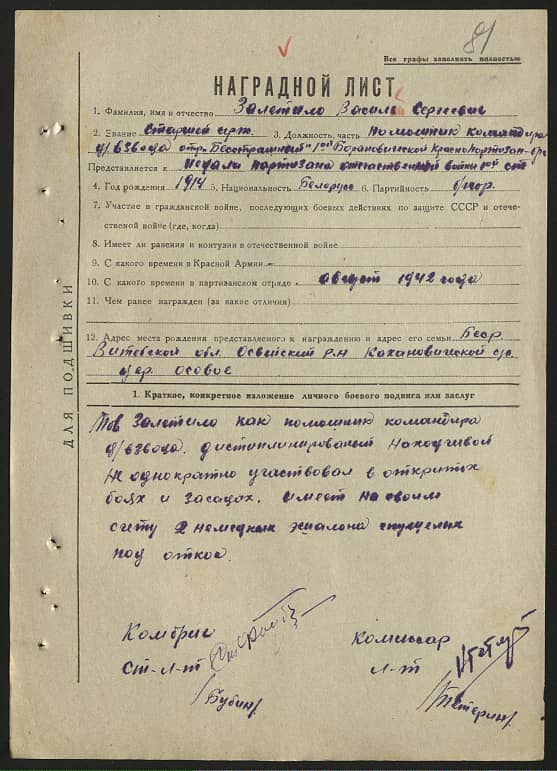 81
Все графы заполнять полностью
НАГРАДНОЙ ЛИСТ
1. Фамилия, имя и отчество Залетило Василь Сергеевич
2. Звание Старшей серж. 3. Должность, часть Помошник командира
д/взвода отр. "Бесстрашный" 1ой Барановической Краснопартизан. бр-ды
Представляется к медали партизана отечественной войны 1ой ст
4. Год рождения 1914 5. Национальность Белорус 6. Партийность б/пар.
7. Участие в гражданской войне, последующих боевых действиях по защите СССР и отече-
ственой войне (где, когда)
8. Имеет ли ранения и контузии в отечественной войне
9. С какого времени в Красной Армии -
10. С какого времени в партизанском отряде август 1942 года
11. Чем ранее награжден (за какие отличия)
12. Адрес места рождения представляемого к награждению и адрес его семьи Бсср
Витебской обл. Освейский р-н Кохановической с/с
дер. Осовое
1. Краткое, конкретное изложение личного боевого подвига или заслуг
Тов Залетило как помошник командира
д/взвода, дистиплинированый находчивой
не однократно участвовал в открытых
боях и засадах. имеет на своим
счету 2 немецких эшалона спущеных
под откос.
Комбриг Комиссар
Ст-л-т л-т
/Бубин/ /Тетерин/
ДЛЯ ПОДШИВКИ